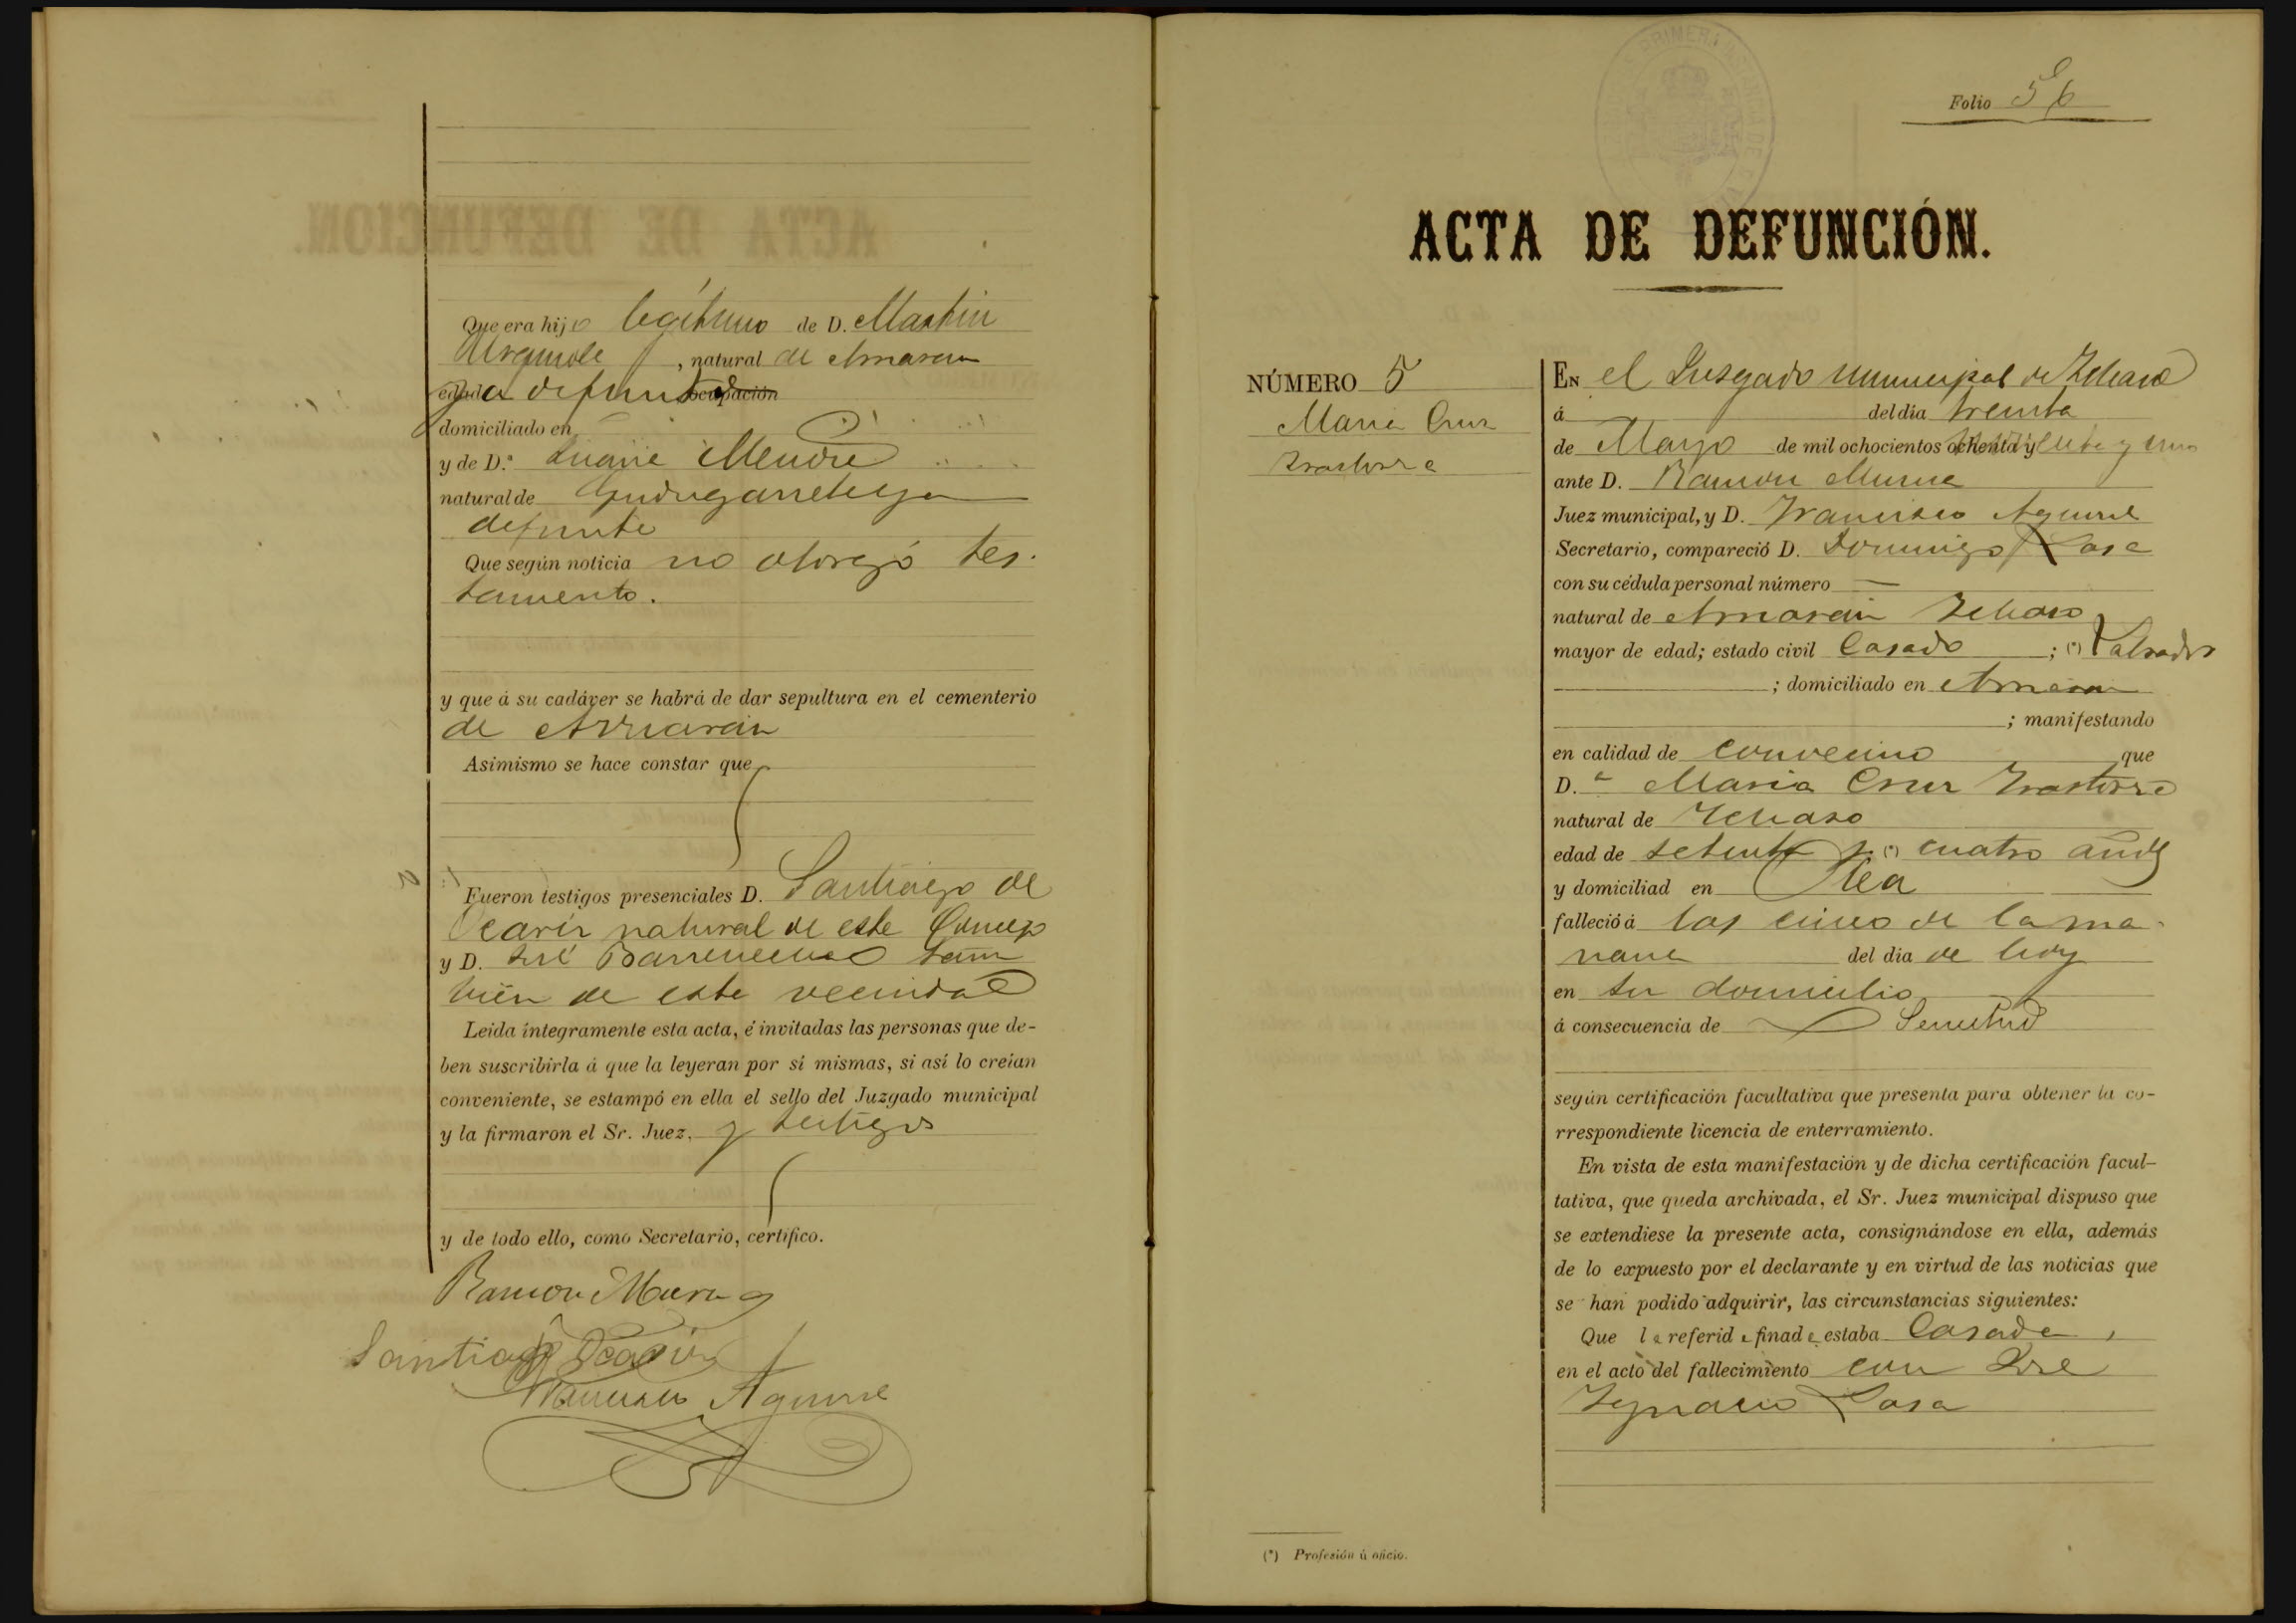 Que era hijo legítimo de D. Martin
Urquiole, natural de Arriaran
ya defunto
domiciliado en
y de D.ª Luaria Mendia
natural de Gudugarreteya
defunta
Que según noticia no otorgó tes-
tamento.
y que á su cadáver se habrá de dar sepultura en el cementerio
de Arriaran
Asimismo se hace constar que
Fueron testigos presenciales D. Santiago de
Ocariz natural de este Concejo
y D. José Barrenechea tam
bien de esta vecindad
Leida íntegramente esta acta, é invitadas las personas que de-
ben suscribirla á que la leyeran por sí mismas, si así lo creían
conveniente, se estampó en ella el sello del Juzgado municipal
y la firmaron el Sr. Juez, y testigos
y de todo ello, como Secretario, certifico.
Ramon Murua
Santiago Ocariz
Francisco Aguirre
Folio 56
ACTA DE DEFUNCIÓN.
NÚMERO 5
Maria Cruz
Irastorza
EN el Jusgado municipal de Ichaso
á del dia treinta
de Mayo de mil ochocientos noventa y uno
ante D. Ramon Murua
Juez municipal, y D. Francisco Aguirre
Secretario, compareció D. Domingo Lasa
con su cédula personal número —
natural de Arriaran Ichaso
mayor de edad; estado civil Casado ; (*) Labrador
; domiciliado en Arriaran
; manifestando
en calidad de convecino que
D.ª Maria Cruz Irastorza
natural de Ichaso
edad de setenta y (*) cuatro años
y domiciliad en
falleció á las cinco de la ma-
ñana del dia de hoy
en su domicilio
á consecuencia de Senectud
según certificación facultativa que presenta para obtener la co-
rrespondiente licencia de enterramiento.
En vista de esta manifestación y de dicha certificación facul-
tativa, que queda archivada, el Sr. Juez municipal dispuso que
se extendiese la presente acta, consignándose en ella, además
de lo expuesto por el declarante y en virtud de las noticias que
se han podido adquirir, las circunstancias siguientes:
Que la referida finada estaba Casada,
en el acto del fallecimiento con José
Ygnacio Lasa
(*) Profesión ú oficio.